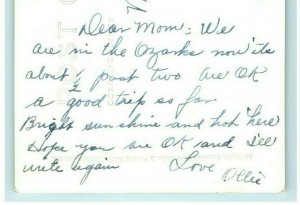 Dear Mom: We
are in the Ozarks now its
about ½ past two are OK
a good trip so far
Bright sun shine and hot here
Hope you are OK and I'll
write again Love
Ollie